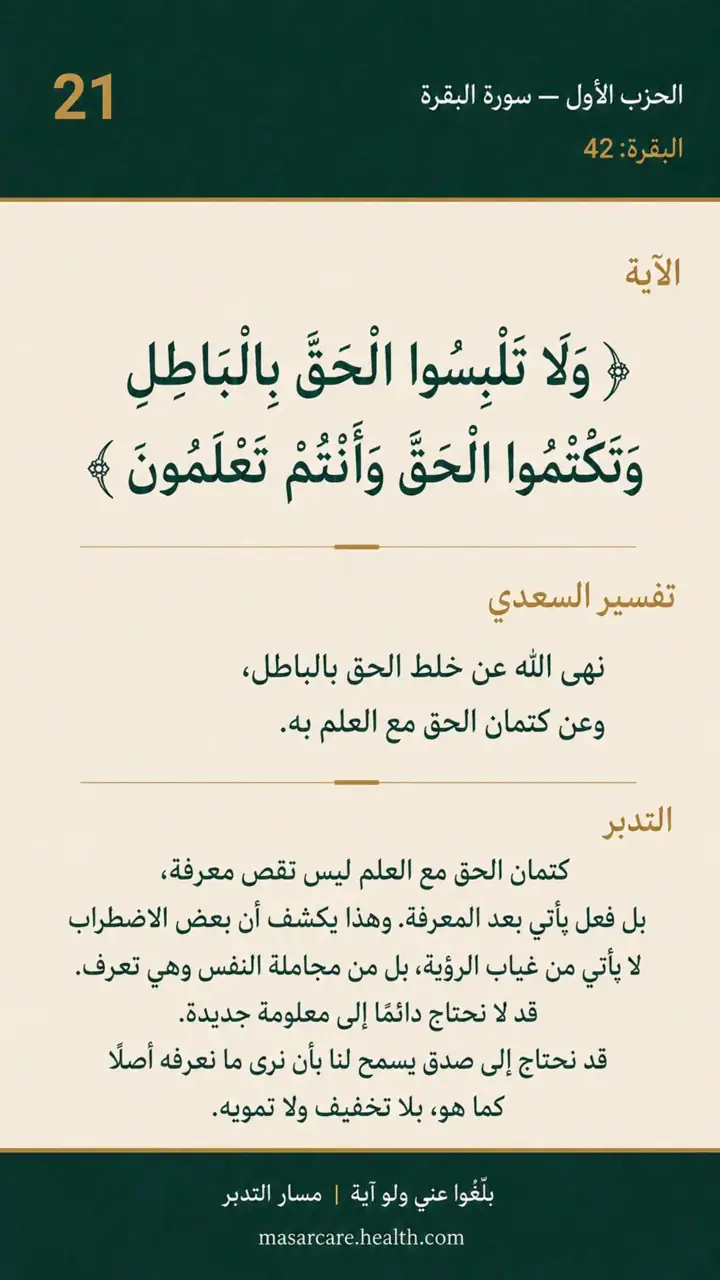 21
الحزب الأول — سورة البقرة
البقرة: 42
الآية
﴿ وَلَا تَلْبِسُوا الْحَقَّ بِالْبَاطِلِ
وَتَكْتُمُوا الْحَقَّ وَأَنْتُمْ تَعْلَمُونَ ﴾
تفسير السعدي
نهى الله عن خلط الحق بالباطل،
وعن كتمان الحق مع العلم به.
التدبر
كتمان الحق مع العلم ليس تقص معرفة،
بل فعل يأتي بعد المعرفة. وهذا يكشف أن بعض الاضطراب
لا يأتي من غياب الرؤية، بل من مجاملة النفس وهي تعرف.
قد لا نحتاج دائمًا إلى معلومة جديدة.
قد نحتاج إلى صدق يسمح لنا بأن نرى ما نعرفه أصلًا
كما هو، بلا تخفيف ولا تمويه.
بلّغُوا عني ولو آية | مسار التدبر
masarcare.health.com